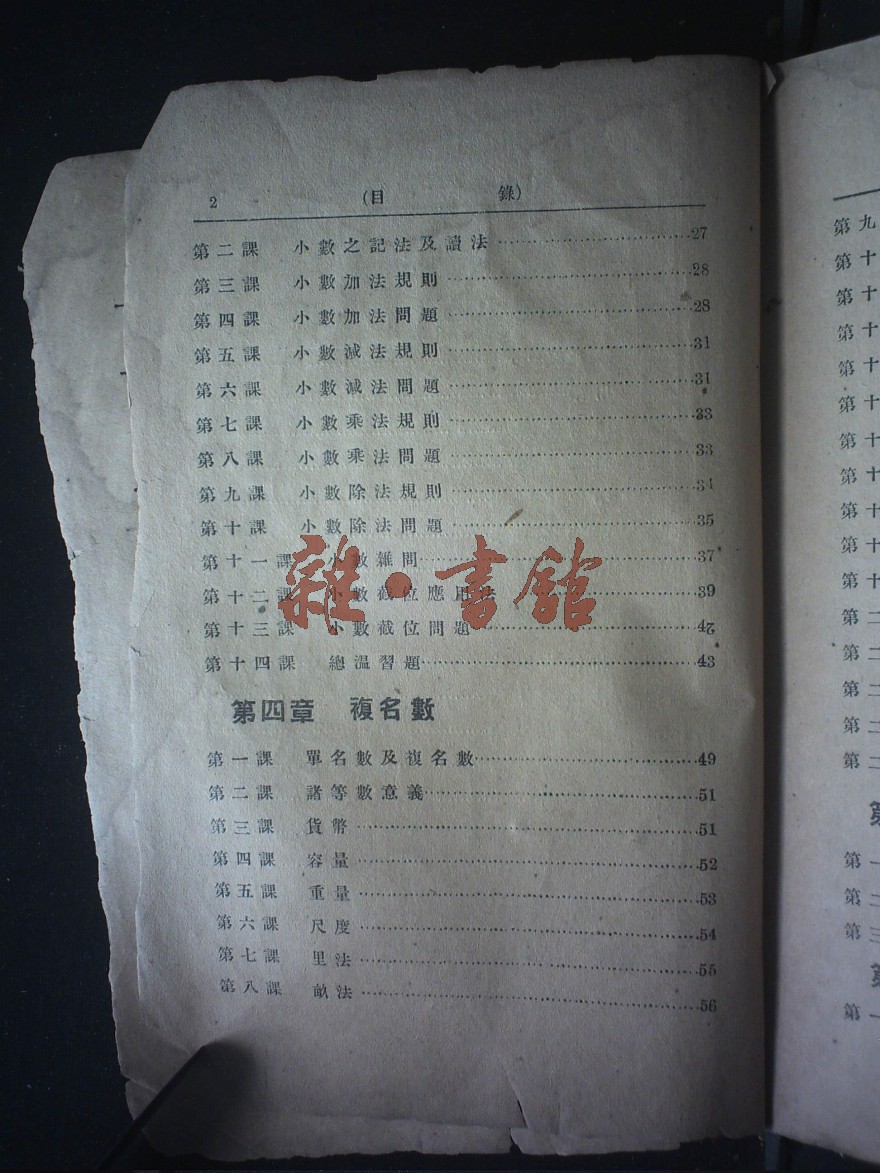 2 (目 錄)
第二課 小數之記法及讀法 27
第三課 小數加法規則 28
第四課 小數加法問題 28
第五課 小數減法規則 31
第六課 小數減法問題 31
第七課 小數乘法規則 33
第八課 小數乘法問題 33
第九課 小數除法規則 34
第十課 小數除法問題 35
第十一課 小數雜問 37
第十二課 小數截位應用法 39
第十三課 小數截位問題 42
第十四課 總温習題 43
雜·書館
第四章 複名數
第一課 單名數及複名數 49
第二課 諸等數意義 51
第三課 貨幣 51
第四課 容量 52
第五課 重量 53
第六課 尺度 54
第七課 里法 55
第八課 畝法 56
第九
第十
第十
第十
第十
第十
第十
第十
第十
第十
第十
第二
第二
第二
第二
第二
第
第一
第二
第三
第
第一